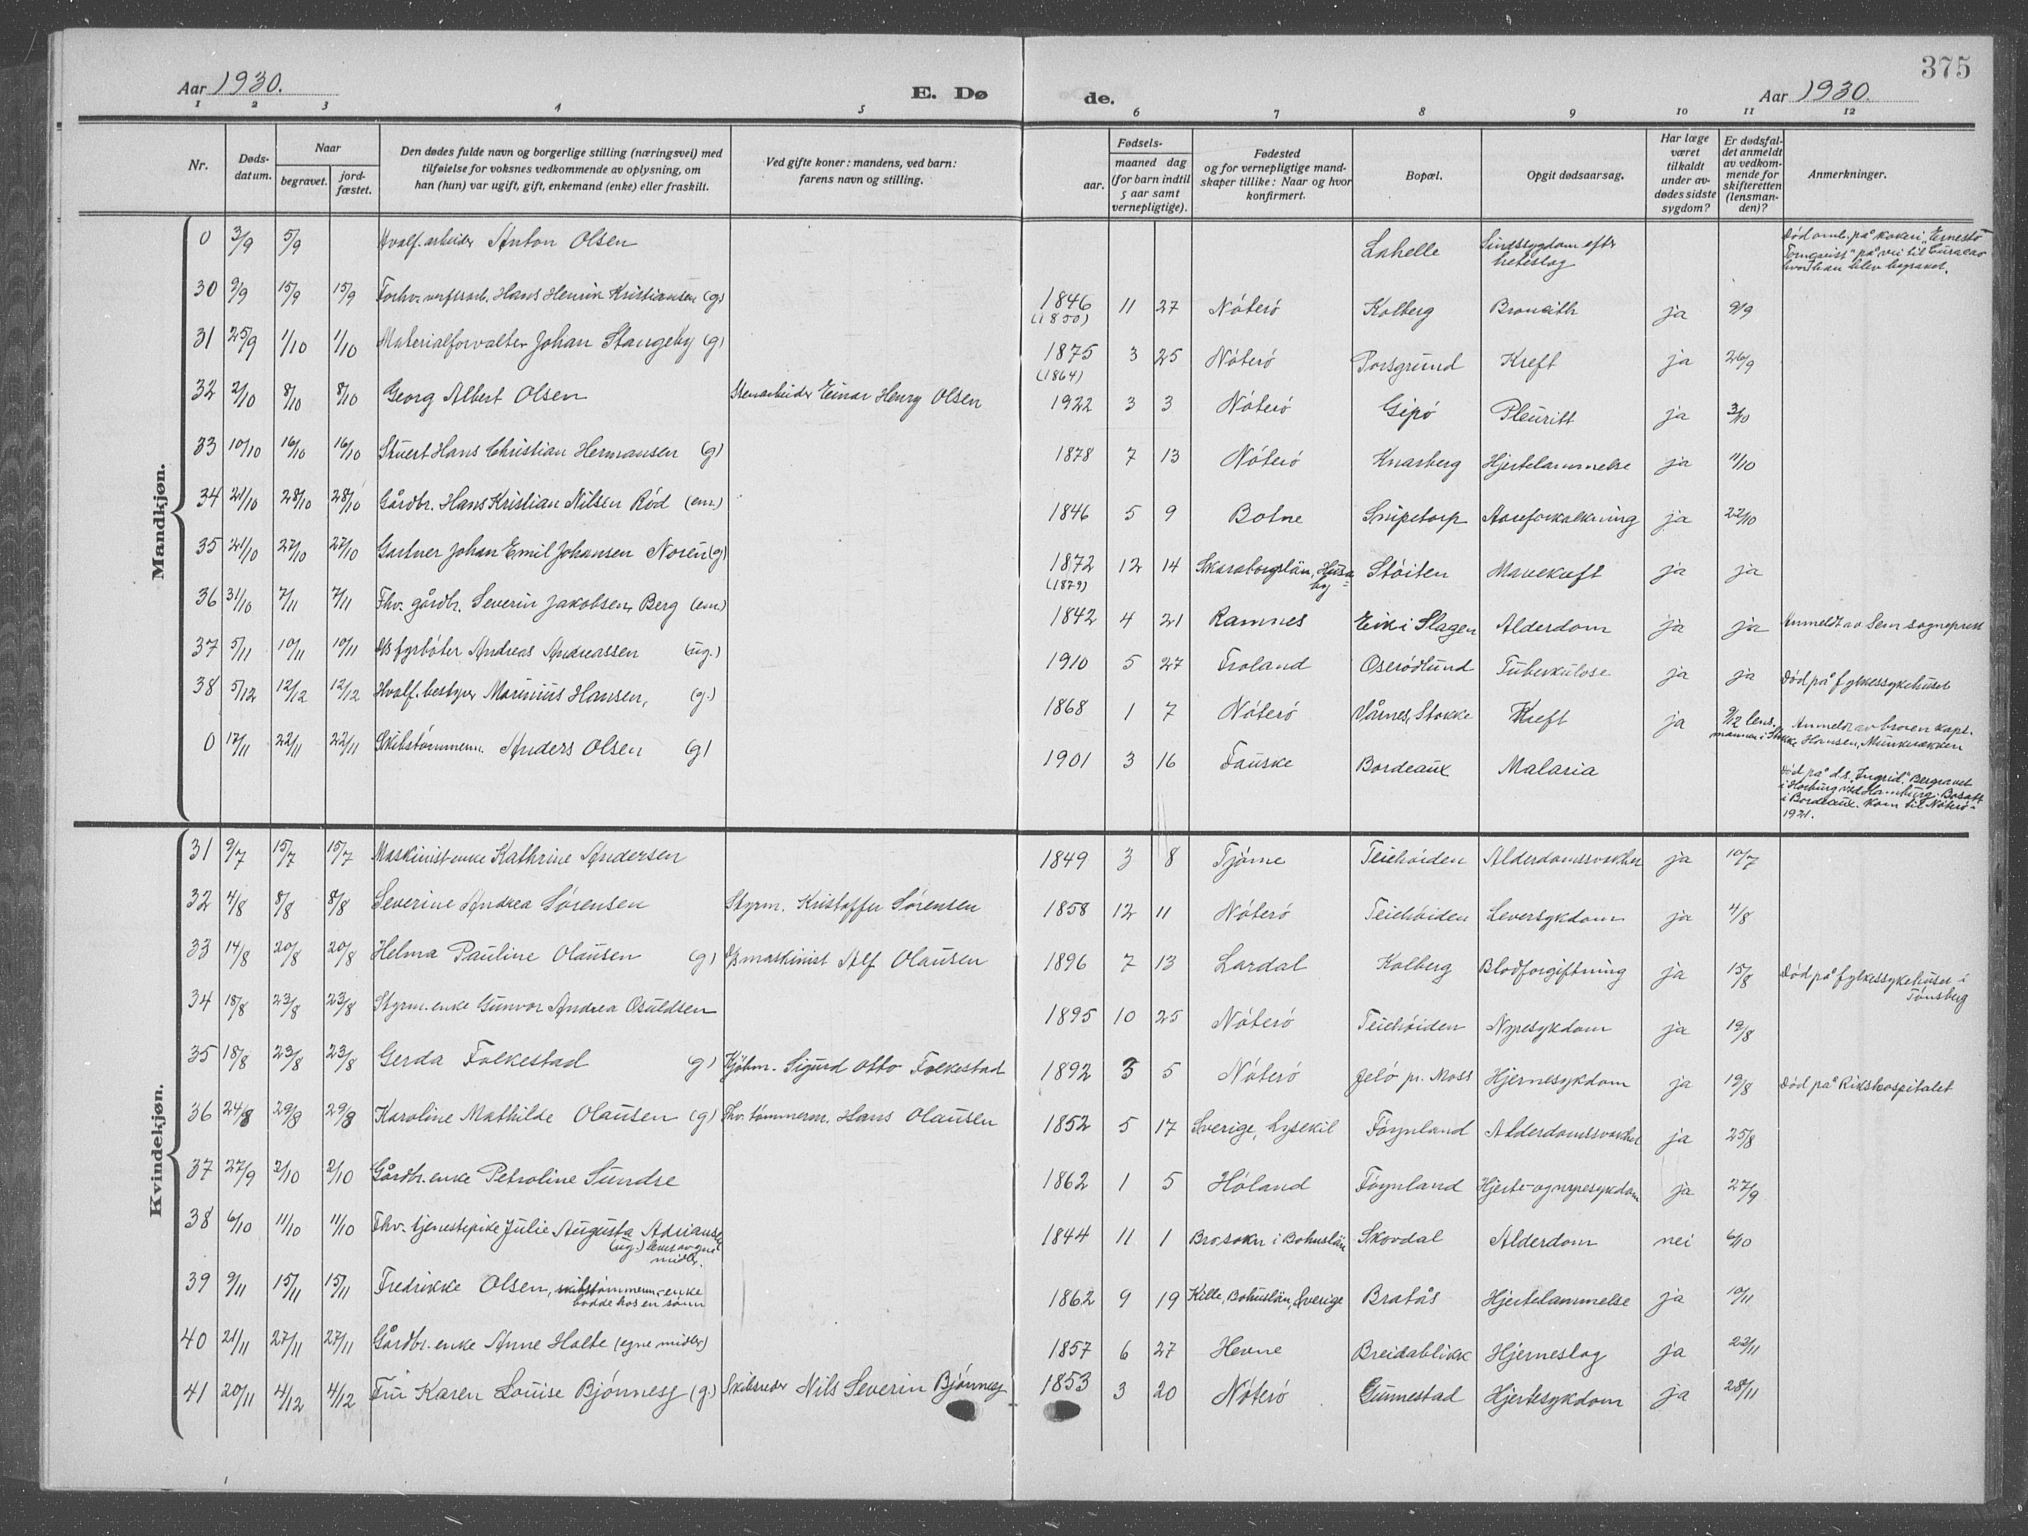 375
Aar 1930. E. Dø de. Aar 1930.
1 2 3 4 5 6 7 8 9 10 11 12
Nr. Døds-datum. Naar begravet. jord-fæstet. Den dødes fulde navn og borgerlige stilling (næringsvei) med tilføielse for voksnes vedkommende av oplysning, om han (hun) var ugift, gift, enkemand (enke) eller fraskilt. Ved gifte koner: mandens, ved barn: farens navn og stilling. Fødsels- aar. maaned dag (for barn indtil 5 aar samt vernepligtige). Fødested og for vernepligtige mandskaper tillike: Naar og hvor konfirmert. Bopæl. Opgit dødsaarsag. Har læge været tilkaldt under avdødes sidste sygdom? Er dødsfaldet anmeldt av vedkommende for skifteretten (lensmanden)? Anmerkninger.
Mandkjøn.
0 3/9 5/9 Hvalf. arbeider Anton Olsen Lahelle Sindssygdom efter heteslag Død omb. på kokeri "Ernesto Tornquist" på vei til Curacao hvor han blev begravet.
30 9/9 15/9 15/9 Forhv. verftsarb. Hans Henrik Kristiansen (g) 1846 (1850) 11 27 Nöterö Kolberg Bronkith ja 9/9
31 25/9 1/10 1/10 Materialforvalter Johan Stangeby (g) 1875 (1864) 3 25 Nöterö Porsgrund Kreft ja 26/9
32 2/10 8/10 8/10 Georg Albert Olsen Stenarbeider Einar Henry Olsen 1922 3 3 Nöterö Gipö Pleuritt ja 3/10
33 10/10 16/10 16/10 Stuert Hans Christian Hermansen (g) 1878 7 13 Nöterö Knarberg Hjertelammelse ja 11/10
34 21/10 28/10 28/10 Gårdbr. Hans Kristian Nilsen Röd (em.) 1846 5 9 Botne Snipetorp Aareforkalkning ja 22/10
35 21/10 27/10 27/10 Gartner Johan Emil Johansen Noren (g) 1872 (1879) 12 14 Skaraborgslän, Husaby Stöiten Mavekreft ja ja
36 31/10 7/11 7/11 Fhv. gårdbr. Severin Jakobsen Berg (em) 1842 4 21 Ramnes Eik i Slagen Alderdom ja ja Anmeldt av Sem sogneprest
37 5/11 10/11 10/11 D/S fyrböter Andreas Andreassen (ug.) 1910 5 27 Froland Oserödlund Tuberkulose ja ja Död på fylkessykehuset
38 5/12 12/12 12/12 Hvalf. bestyrer Marinius Hansen, (g.) 1868 1 7 Nöterö Vårnes, Stokke Kreft ja 9/12 lensmannen i Stokke Anmeldt av broren kapt. Hansen, Munkerekken
0 17/11 22/11 22/11 Skibstömmerm. Anders Olsen (g) 1901 3 16 Fauske Bordeaux Malaria Död på d.s. "Ingrid". Bergravet i Harburg ved Hamburg. Bosatt i Bordeaux. Kom til Nöterö 1921.
Kvindekjøn.
31 9/7 15/7 15/7 Maskinist-enke Kathrine Andersen 1849 3 8 Tjöme Teiehöiden Alderdomssvakhet ja 10/7
32 4/8 8/8 8/8 Severine Andrea Sörensen Styrm. Kristoffer Sörensen 1858 12 11 Nöterö Teiehöiden Leversykdom ja 4/8
33 14/8 20/8 20/8 Helma Pauline Olausen (g) D/S maskinist Alf Olausen 1896 7 13 Lardal Kolberg Blodforgiftning ja 15/8 Död på fylkessykehuset i Tönsberg
34 18/8 23/8 23/8 Styrm. enke Gunvor Andrea Osuldsen 1895 10 25 Nöterö Teiehöiden Nyresykdom ja 19/8
35 18/8 23/8 23/8 Gerda Folkestad (g) Kjöbm. Sigurd Otto Folkestad 1892 3 5 Nöterö Jelö pr. Moss Hjernesykdom ja 19/8 Död på Rikshospitalet
36 24/8 29/8 29/8 Karoline Mathilde Olausen (g) Fhv. tömmerm. Hans Olausen 1852 5 17 Sverige, Lysekil Föynland Alderdomssvakhet ja 25/8
37 27/9 2/10 2/10 Gårdbr. enke Petroline Sundre 1862 1 5 Höland Föynland Hjerte- og nyresykdom ja 27/9
38 6/10 11/10 11/10 Fhv. tjenestepike Julie Augusta Adriansen (ug.) lever av egne midler. 1844 11 1 Bro sokn i Bohuslän Skovdal Alderdom nei 6/10
39 9/11 15/11 15/11 Fredrikke Olsen, skibstömmerm.-enke bodde hos en sönn 1862 9 19 Kille, Bohuslän, Sverige Bratås Hjertelammelse ja 10/11
40 21/11 27/11 27/11 Gårdbr. enke Anne Holte (egne midler) 1857 6 27 Hevne Breidablikk Hjerneslag ja 22/11
41 20/11 4/12 4/12 Fru Karen Louise Bjönnes (g.) Skibsreder Nils Severin Bjönnes 1853 3 20 Nöterö Gunnestad Hjertesykdom ja 28/11